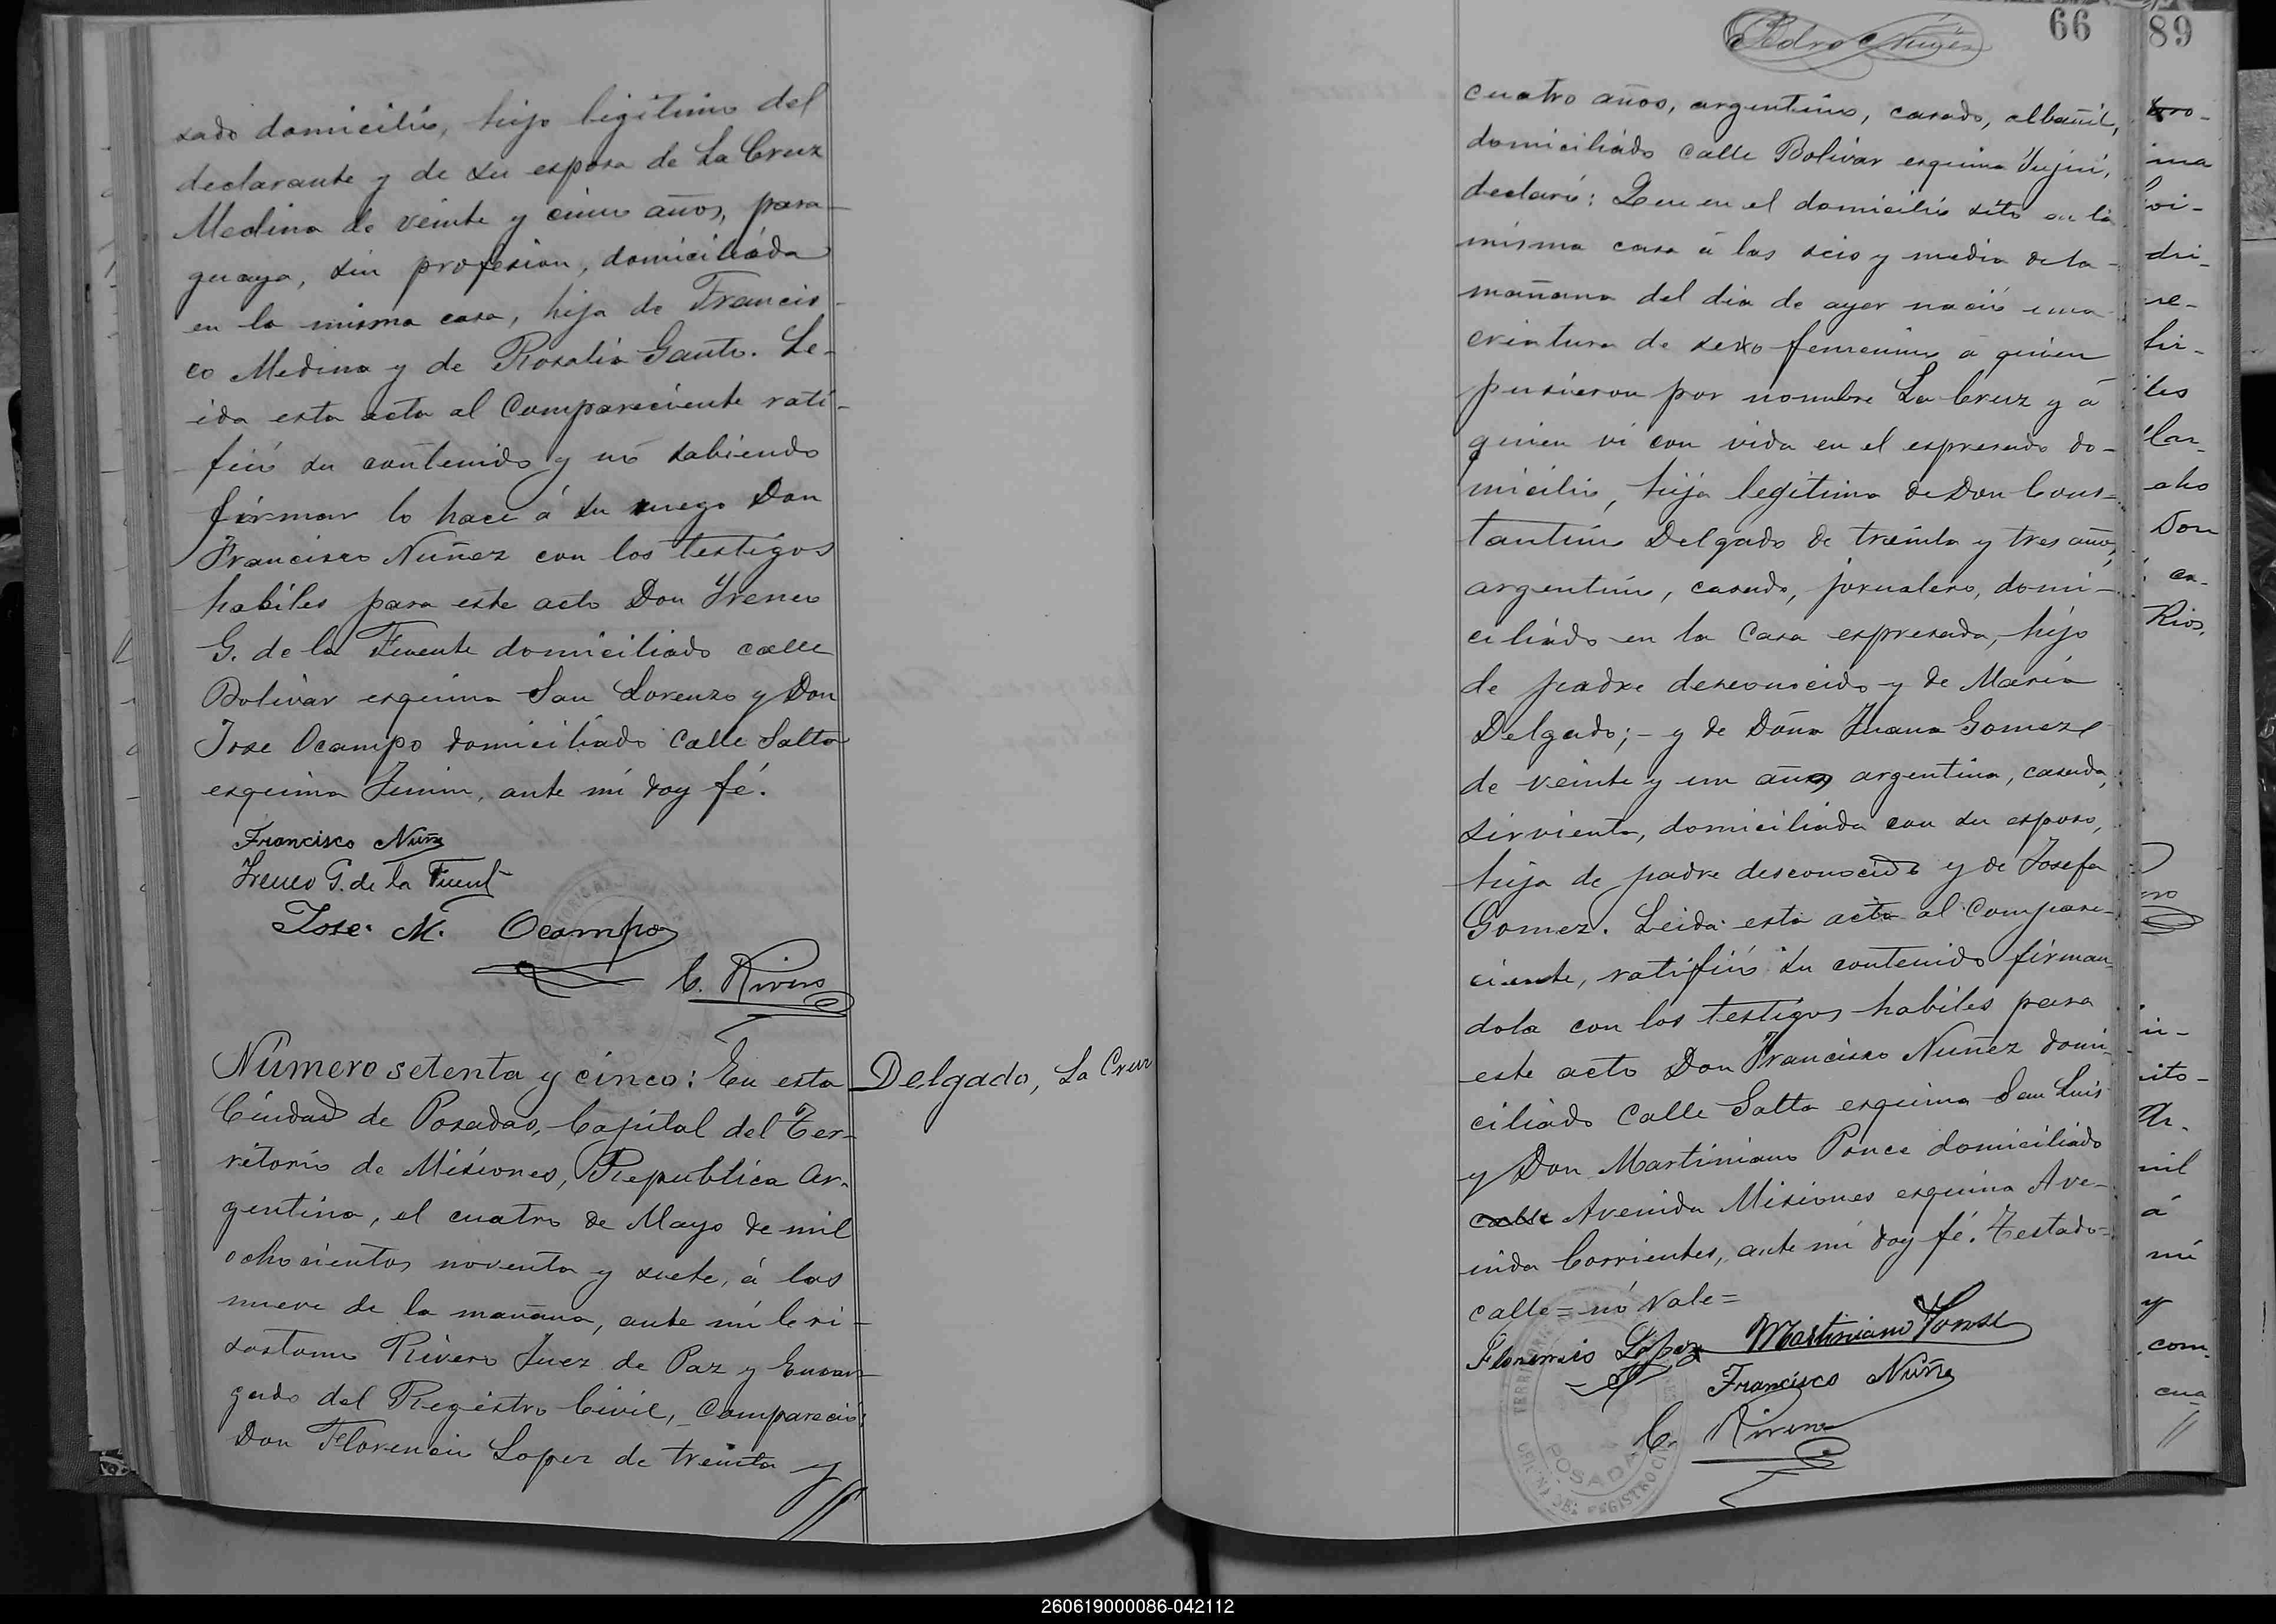 sado domicilio, hijo legítimo del
declarante y de su esposa de La Cruz
Medina de veinte y cinco años, para-
guaya, sin profesion, domiciliada
en la misma casa, hija de Francis-
co Medina y de Rosalia Gauto. Le-
ida esta acta al Compareciente rati-
ficó su contenido y nó sabiendo
firmar lo hace á su ruego Don
Francisco Nuñez con los testigos
habiles para este acto Don Yreneo
G. de la Fuente domiciliado calle
Bolívar esquina San Lorenzo y Don
Jose Ocampo domiciliado Calle Salta
esquina Junin, ante mí doy fé.
Francisco Nuñz
Yreneo G. de la Fuent
Jose. M. Ocampo
C. Rivero
Número setenta y cinco: En esta
Delgado, La Cruz
Ciudad de Posadas, Capital del Ter-
ritorio de Misiones, Republica Ar-
gentina, el cuatro de Mayo de mil
ochocientos noventa y siete, á las
nueve de la mañana, ante mí Cri-
sostomo Rivero Juez de Paz y Encar-
gado del Registro Civil, Compareció:
Don Florencio Lopez de treinta y
66
Pedro Nuñez
cuatro años, argentino, casado, albañil,
domiciliado calle Bolívar esquina Jujui,
declaró: Que en el domicilio sito en la
misma casa á las seis y media de la
mañana del dia de ayer nació una
criatura de sexo femenino á quien
pusieron por nombre La Cruz y á
quien ví con vida en el espresado do-
micilio, hija legítima de Don Cons-
tantino Delgado de treinta y tres años,
argentino, casado, jornalero, domi-
ciliado en la Casa espresada, hijo
de padre desconocido y de María
Delgado;- y de Doña Juana Gomez
de veinte y un años argentina, casada,
sirvienta, domiciliada con su esposo,
hija de padre desconocido y de Josefa
Gomez. Leida esta acta al Compare-
ciente, ratificó su contenido firman-
dola con los testigos habiles para
este acto Don Francisco Nuñez domi-
ciliado Calle Salta esquina San Luis
y Don Martiniano Ponce domiciliado
calle Avenida Misiones esquina Ave-
nida Corrientes, ante mí doy fé. Testado=
calle= nó vale=
Florencio Lopez Martiniano Ponse
Francisco Nuñz
C. Rivero
POSADAS
89
ma
dri-
se-
Don
Rios,
mil
á
mí
y
com-
cua-
260619000086-042112